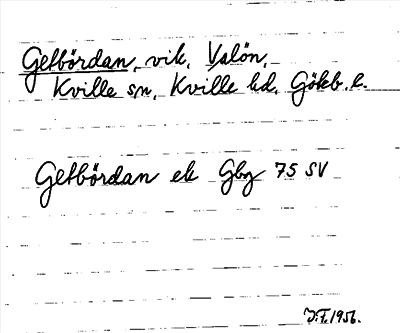 Getbördan, vik, Valön,
Kville sn, Kville hd, Gökb. l.
Getbördan ek Gbg 75 SV
J.F. 1956.